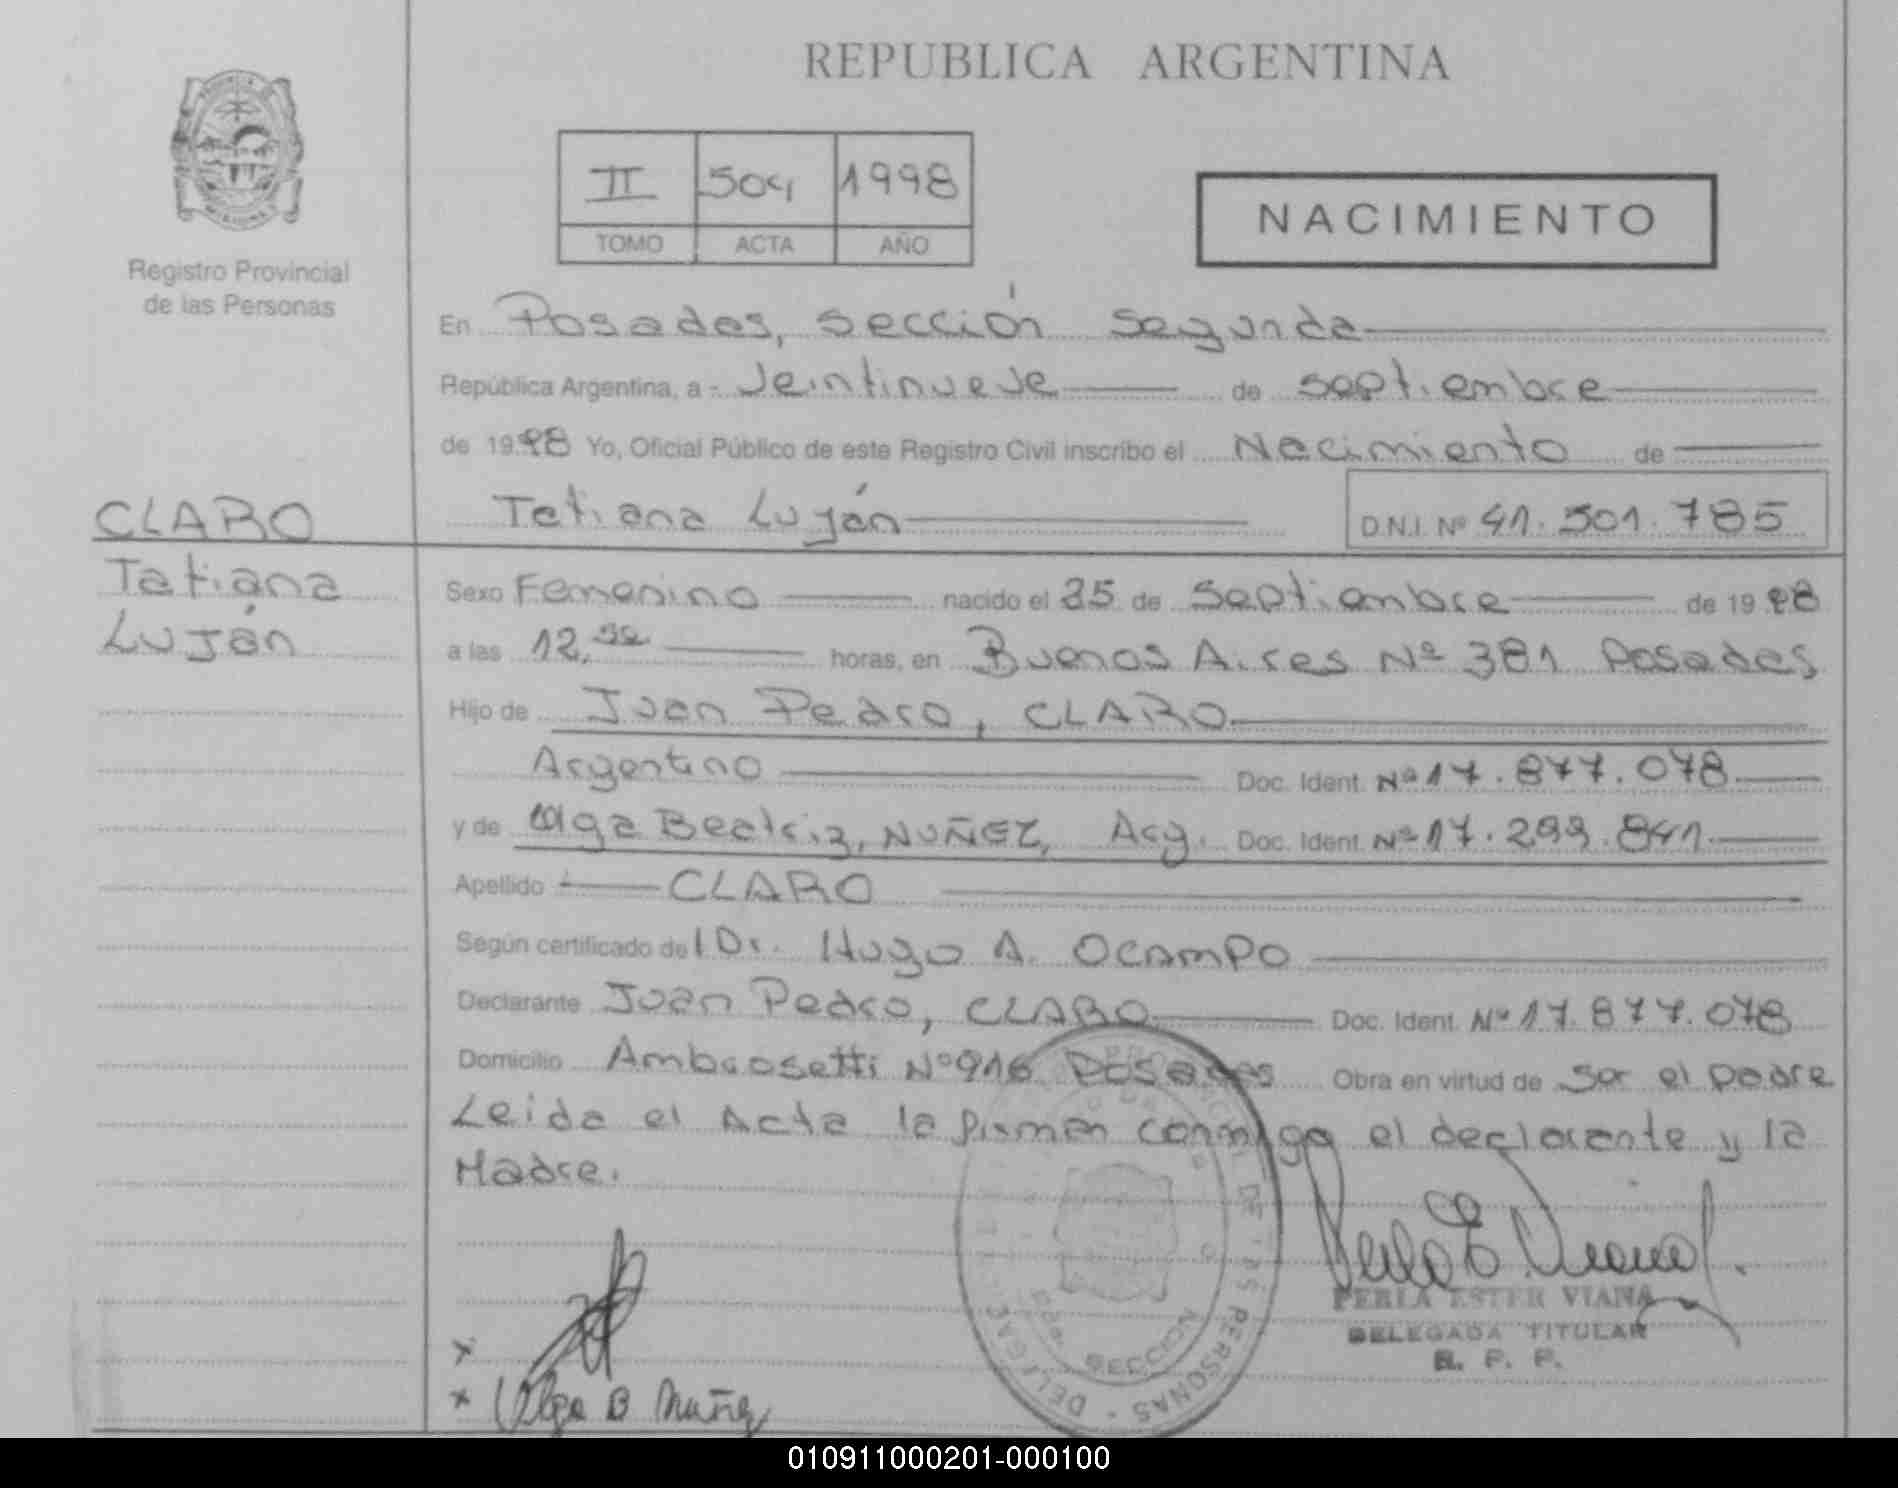 REPUBLICA ARGENTINA
II 504 1998
TOMO ACTA AÑO
NACIMIENTO
Registro Provincial
de las Personas
En Posadas, sección Segunda
República Argentina, a Veintinueve de septiembre
de 1998 Yo, Oficial Público de este Registro Civil inscribo el Nacimiento de
Tatiana Luján D.N.I. Nº 41.501.785
CLARO
Tatiana
Luján
Sexo Femenino nacido el 25 de Septiembre de 1998
a las 12, horas, en Buenos Aires Nº 381 Posadas
Hijo de Juan Pedro, CLARO
Argentino Doc. Ident. Nº 17.877.078
y de Olga Beatriz, NUÑEZ, Arg. Doc. Ident. Nº 17.299.841
Apellido CLARO
Según certificado del Dr. Hugo A. OCAMPO
Declarante Juan Pedro, CLARO Doc. Ident. Nº 17.877.078
Domicilio Ambrosetti Nº 916 Posadas Obra en virtud de ser el padre
Leida el Acta la firman conmigo el declarante y la
Madre.
Perla E Viana
PERLA ESTER VIANA
DELEGADA TITULAR
R. P. P.
SECCION
DE LAS PERSONAS - DELEGA
x
x Olga B Nuñez
010911000201-000100